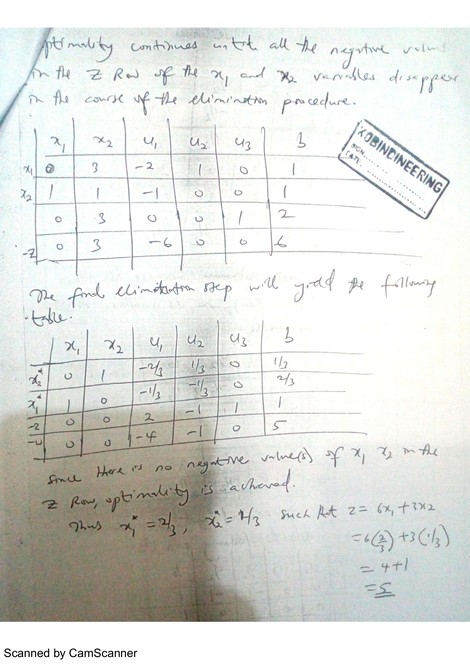 optimality continues until all the negative values
in the Z Row of the x₁ and x₂ variables disappear
in the course of the elimination procedure.
x₁ x₂ u₁ u₂ u₃ b
x₁ 0 3 -2 1 0 1
x₂ 1 1 -1 0 0 1
0 3 0 0 1 2
-Z 0 3 -6 0 0 6
KOBINDINEERING
SIGN......
DATE......
The final elimination step will yield the following
table.
x₁ x₂ u₁ u₂ u₃ b
x₂* 0 1 -2/3 1/3 0 1/3
x₁* 1 0 -1/3 -1/3 0 2/3
0 0 2 -1 1 1
0 0 -4 -1 0 5
Since there is no negative value(s) of x₁ x₂ in the
Z Row, optimality is achieved.
Thus x₁* = 2/3, x₂* = 1/3 such that z = 6x₁ + 3x2
= 6(2/3) + 3(1/3)
= 4+1
= 5
Scanned by CamScanner